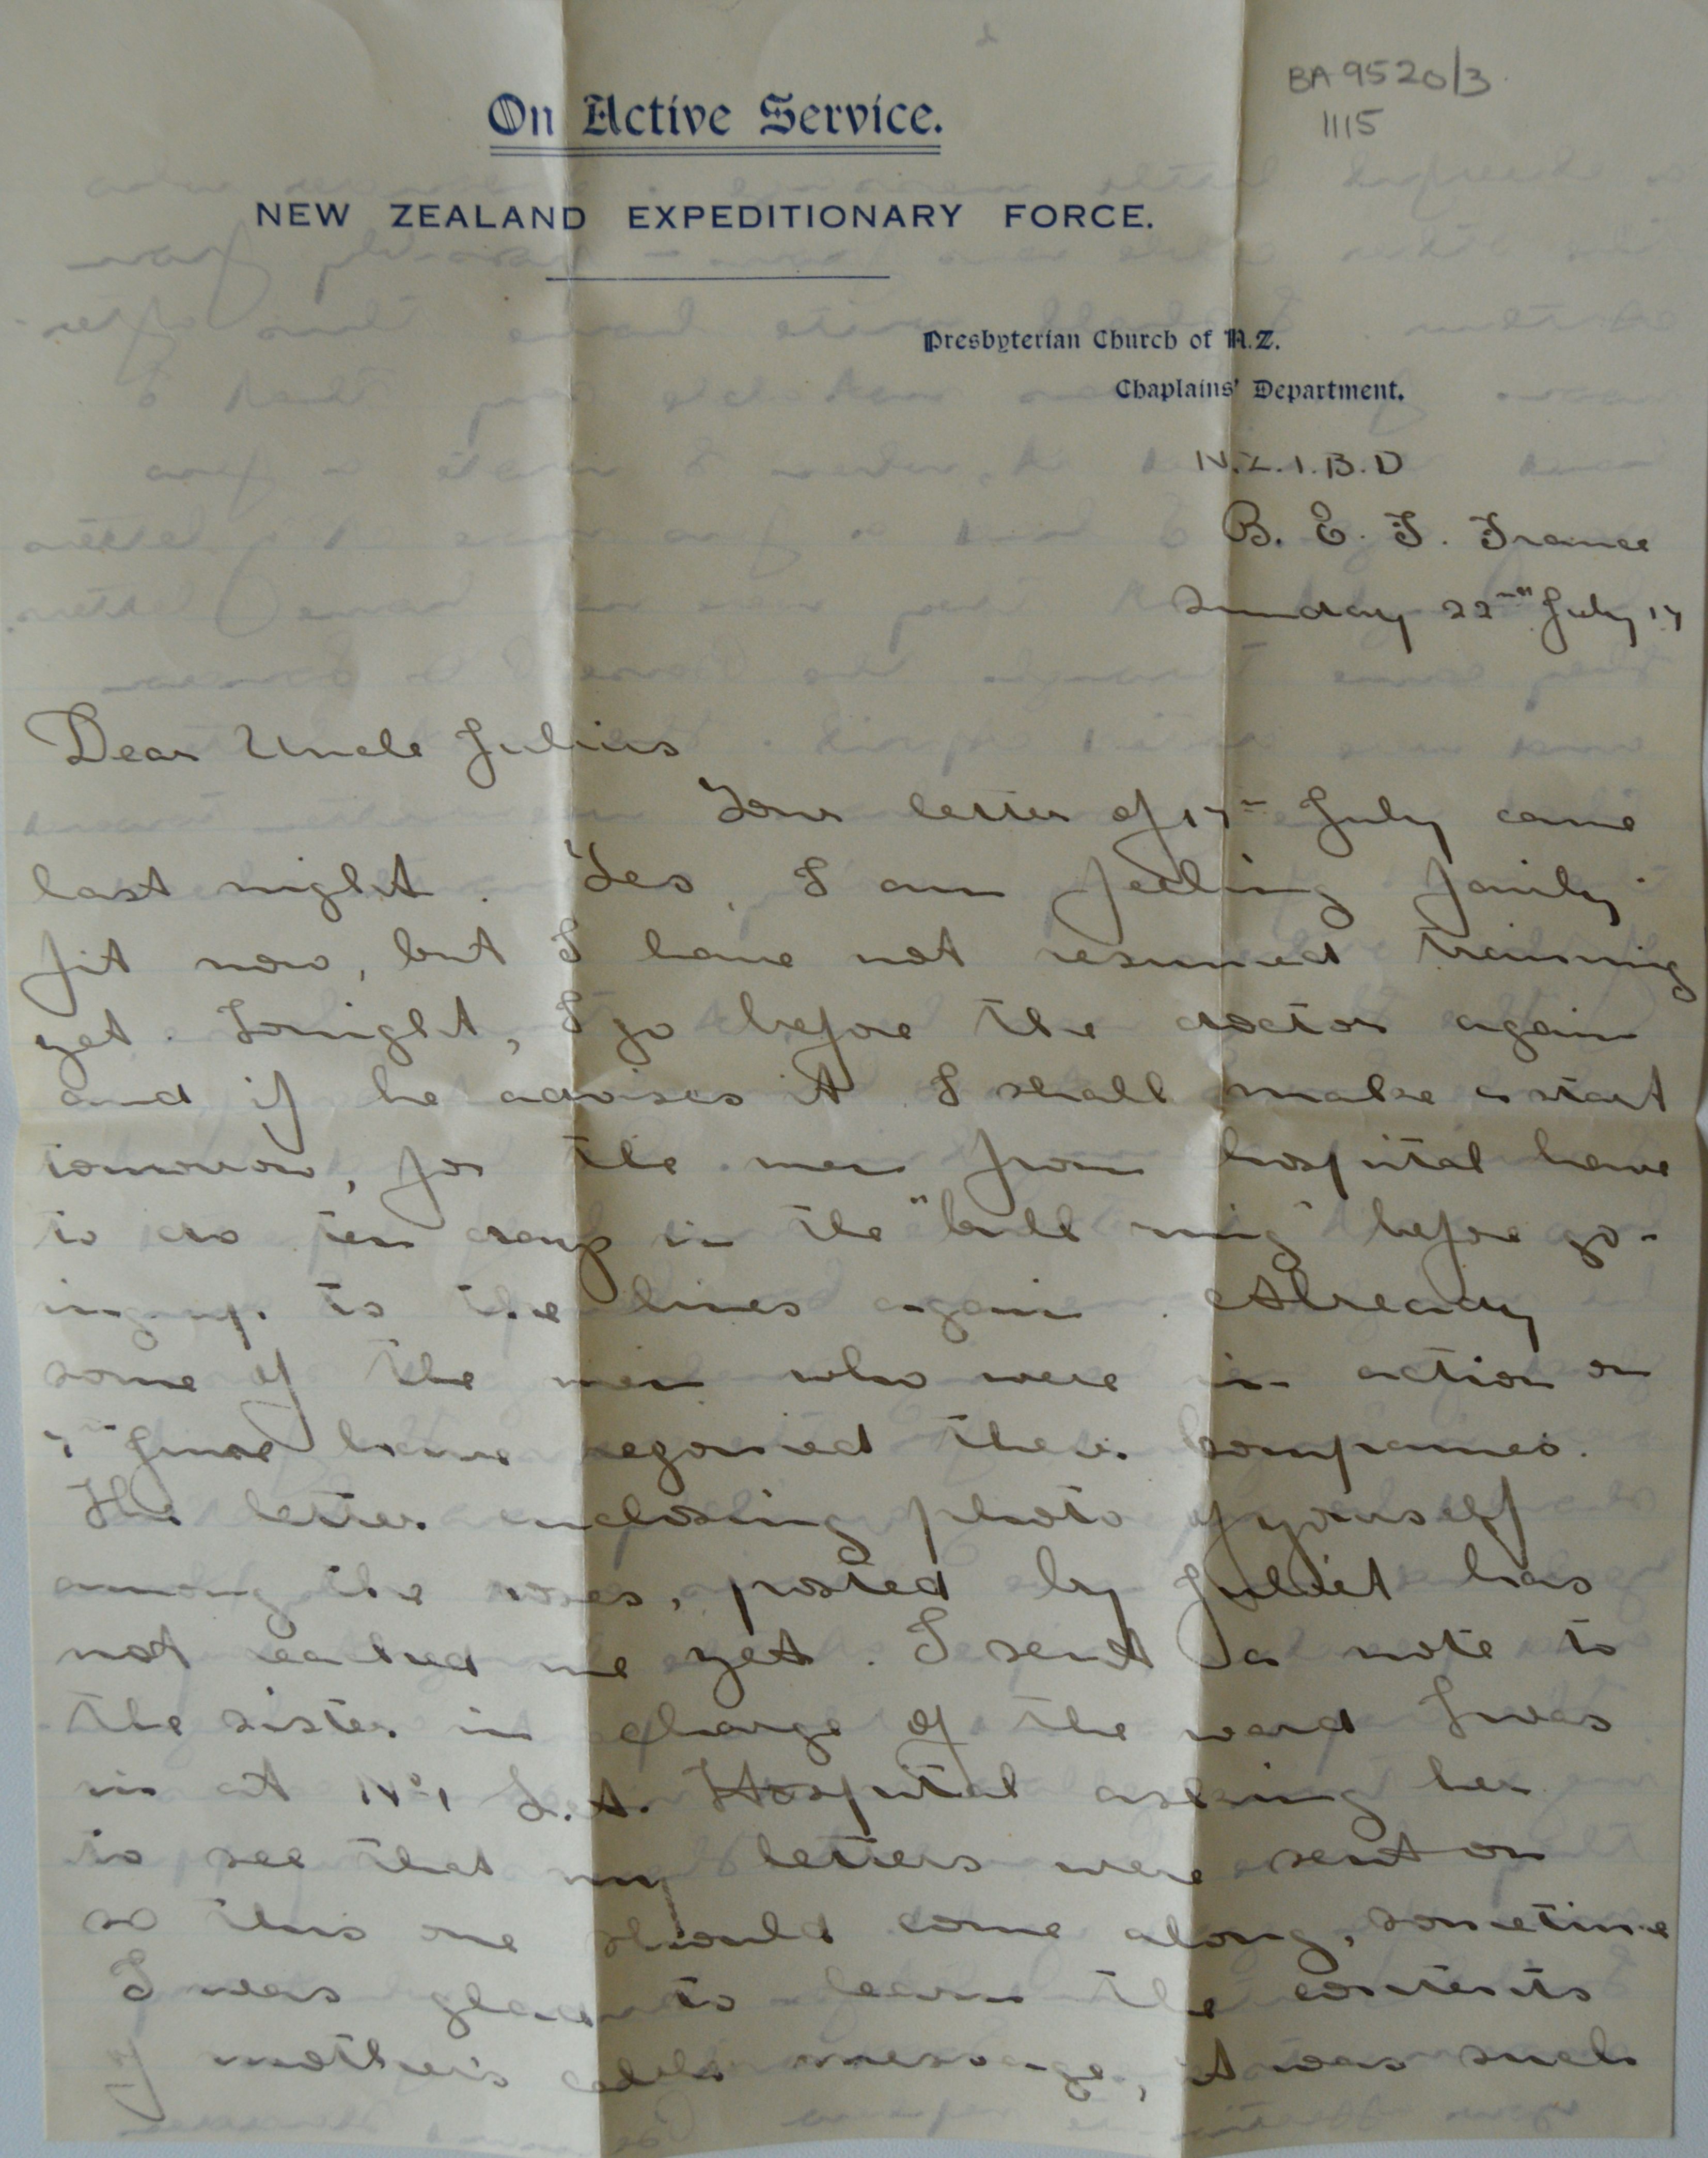 BA 9520/3
1115
On Active Service.
NEW ZEALAND EXPEDITIONARY FORCE.
Presbyterian Church of N.Z.
Chaplains' Department.
N.Z.I.B.D
B. E. F. France
Sunday 22nd July 17
Dear Uncle Julius
Your letter of 17th July came
last night. Yes, I am feeling fairly
fit now, but I have not resumed training
yet. Tonight, I go before the doctor again
and if he advises it I shall make a start
tomorrow, for the men from hospital have
to do ten days in the "bull ring" before go-
ing up to the lines again. Already
some of the men who were in action on
7th June have regoined their companies.
The letter enclosing photo of yourself
among the roses, posted by Juliet has
not reached me yet. I sent a note to
the sister in charge of the ward I was
in at No 1 Hospital asking her
to see that my letters were sent on
so this one should come along, sometime
I was glad to learn the contents
of mother's cable message, it was such